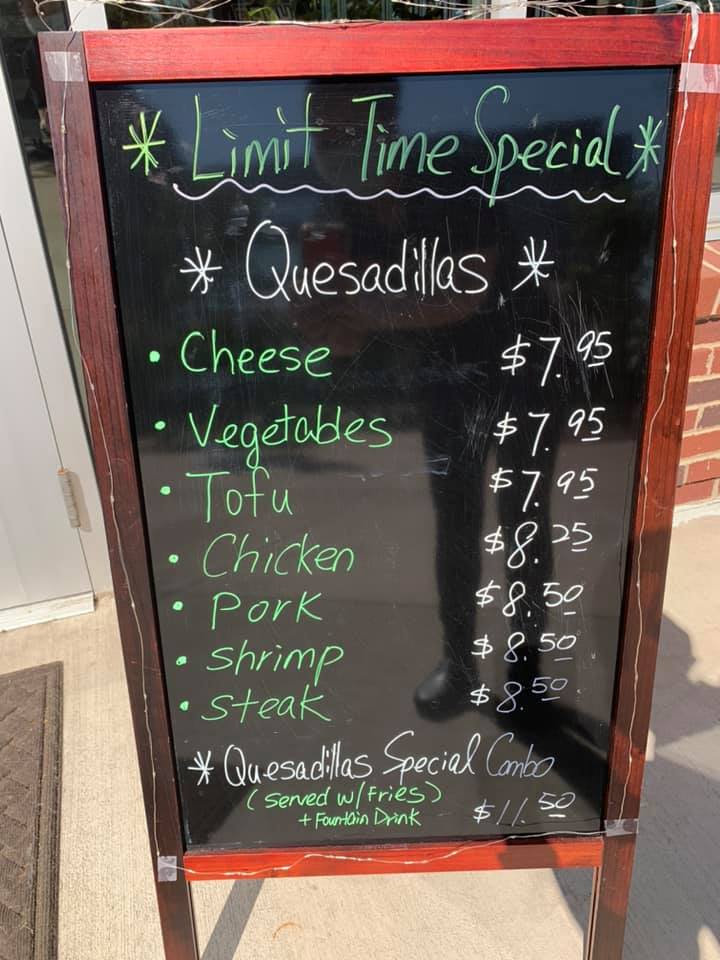 * Limit Time Special *
* Quesadillas *
• Cheese $7.95
• Vegetables $7.95
• Tofu $7.95
• Chicken $8.25
• Pork $8.50
• shrimp $8.50
• steak $8.50
* Quesadillas Special Combo
(served w/ Fries)
+ Fountain Drink $11.50